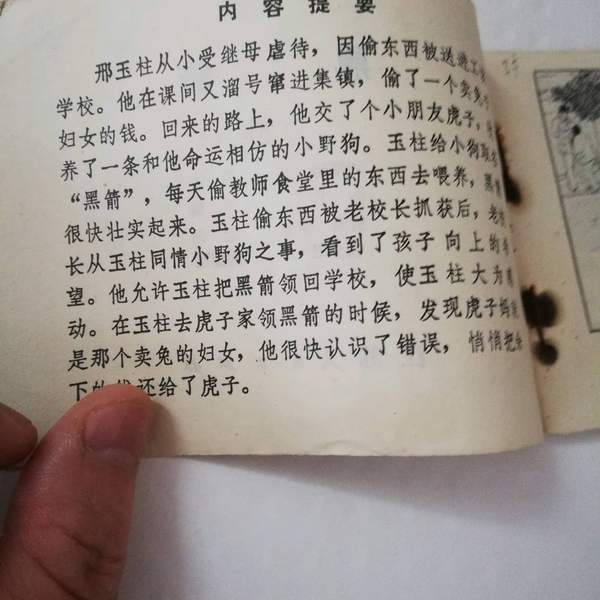 内容提要
邢玉柱从小受继母虐待，因偷东西被送进工读
学校。他在课间又溜号窜进集镇，偷了一个卖兔
妇女的钱。回来的路上，他交了个小朋友虎子，
养了一条和他命运相仿的小野狗。玉柱给小狗取名
“黑箭”，每天偷教师食堂里的东西去喂养，黑
很快壮实起来。玉柱偷东西被老校长抓获后，老
长从玉柱同情小野狗之事，看到了孩子向上的
望。他允许玉柱把黑箭领回学校，使玉柱大为
动。在玉柱去虎子家领黑箭的时候，发现虎子妈
是那个卖兔的妇女，他很快认识了错误，悄悄把余
下的钱还给了虎子。